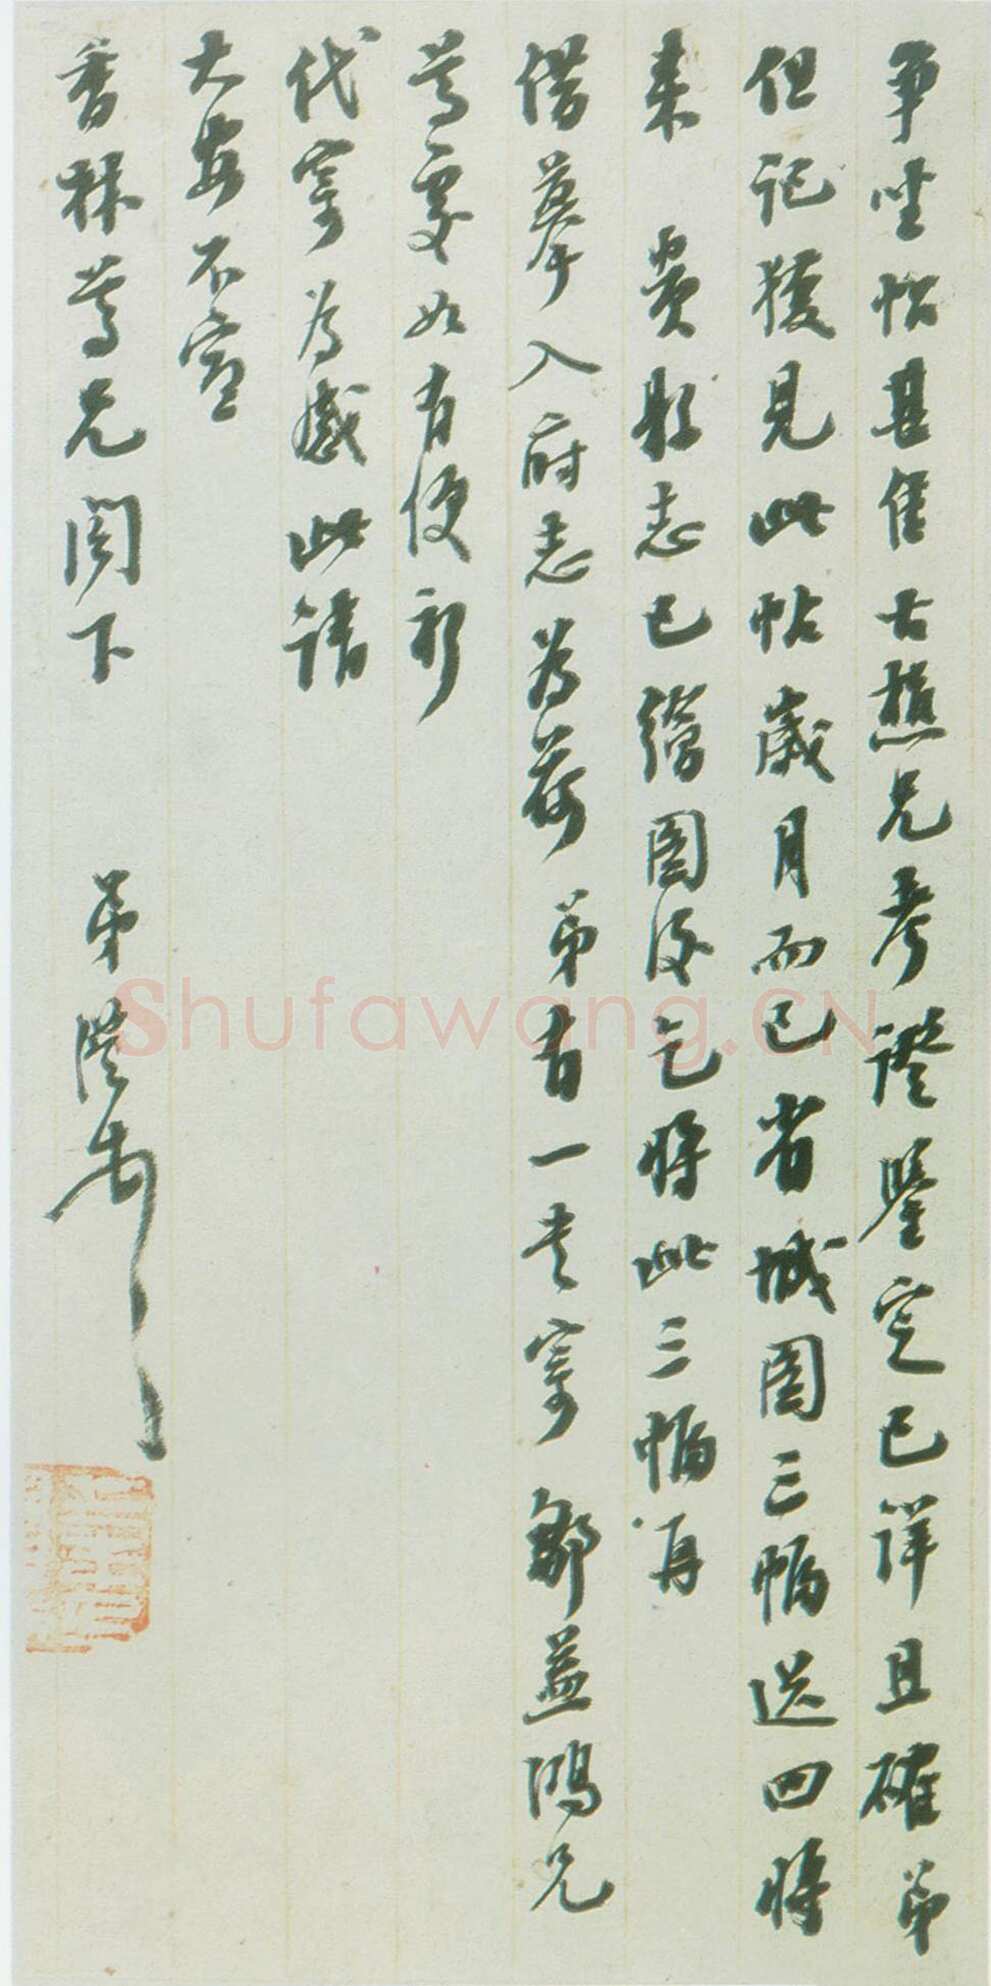 争坐帖甚佳古樵兄考證鑒定已詳且確弟
但記獲見此帖歲月而已省城图三幅送回將
来貴縣志已繪图後乞將此三幅再
借摹入府志為荷弟有一書寄鄒益鴻兄
尊處如有便祈
代寄為感此請
大安不宣
香林尊兄閣下 弟澧
Shufawang.CN